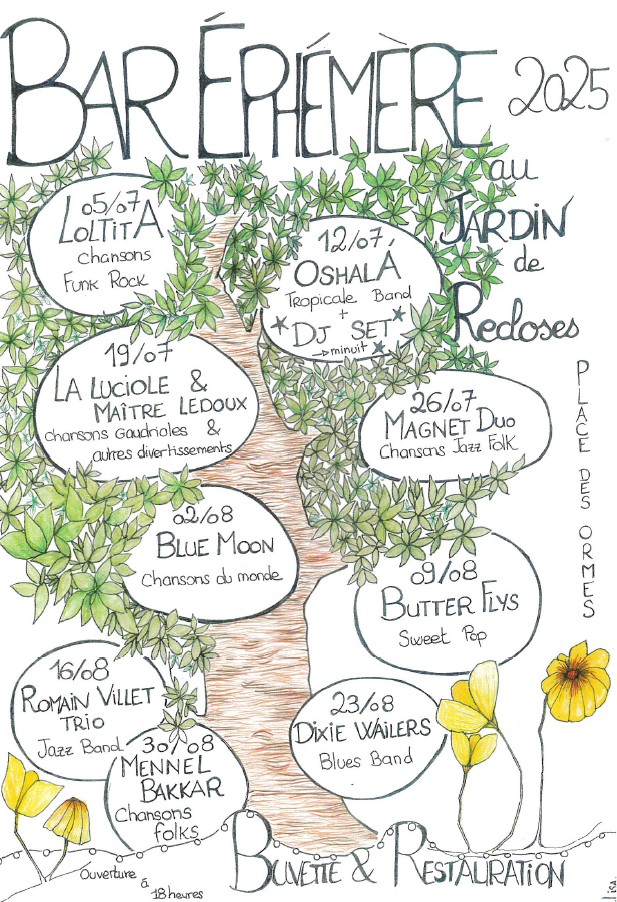 BAR ÉPHÉMÈRE 2025
au
JARDIN
de
Redoses
PLACE DES ORMES
05/07
LOLTITA
chansons
Funk Rock
12/07
OSHALÁ
Tropicale Band
+
DJ SET
→ minuit
19/07
LA LUCIOLE &
MAÎTRE LEDOUX
chansons Gaudriales &
autres divertissements
26/07
MAGNET DUO
Chansons Jazz Folk
02/08
BLUE MOON
Chansons du monde
09/08
BUTTER FLYS
Sweet Pop
16/08
ROMAIN VILLET
TRIO
Jazz Band
23/08
DIXIE WAILERS
Blues Band
30/08
MENNEL
BAKKAR
Chansons
folks
BUVETTE & RESTAURATION
Ouverture
à
18 heures
lisa.